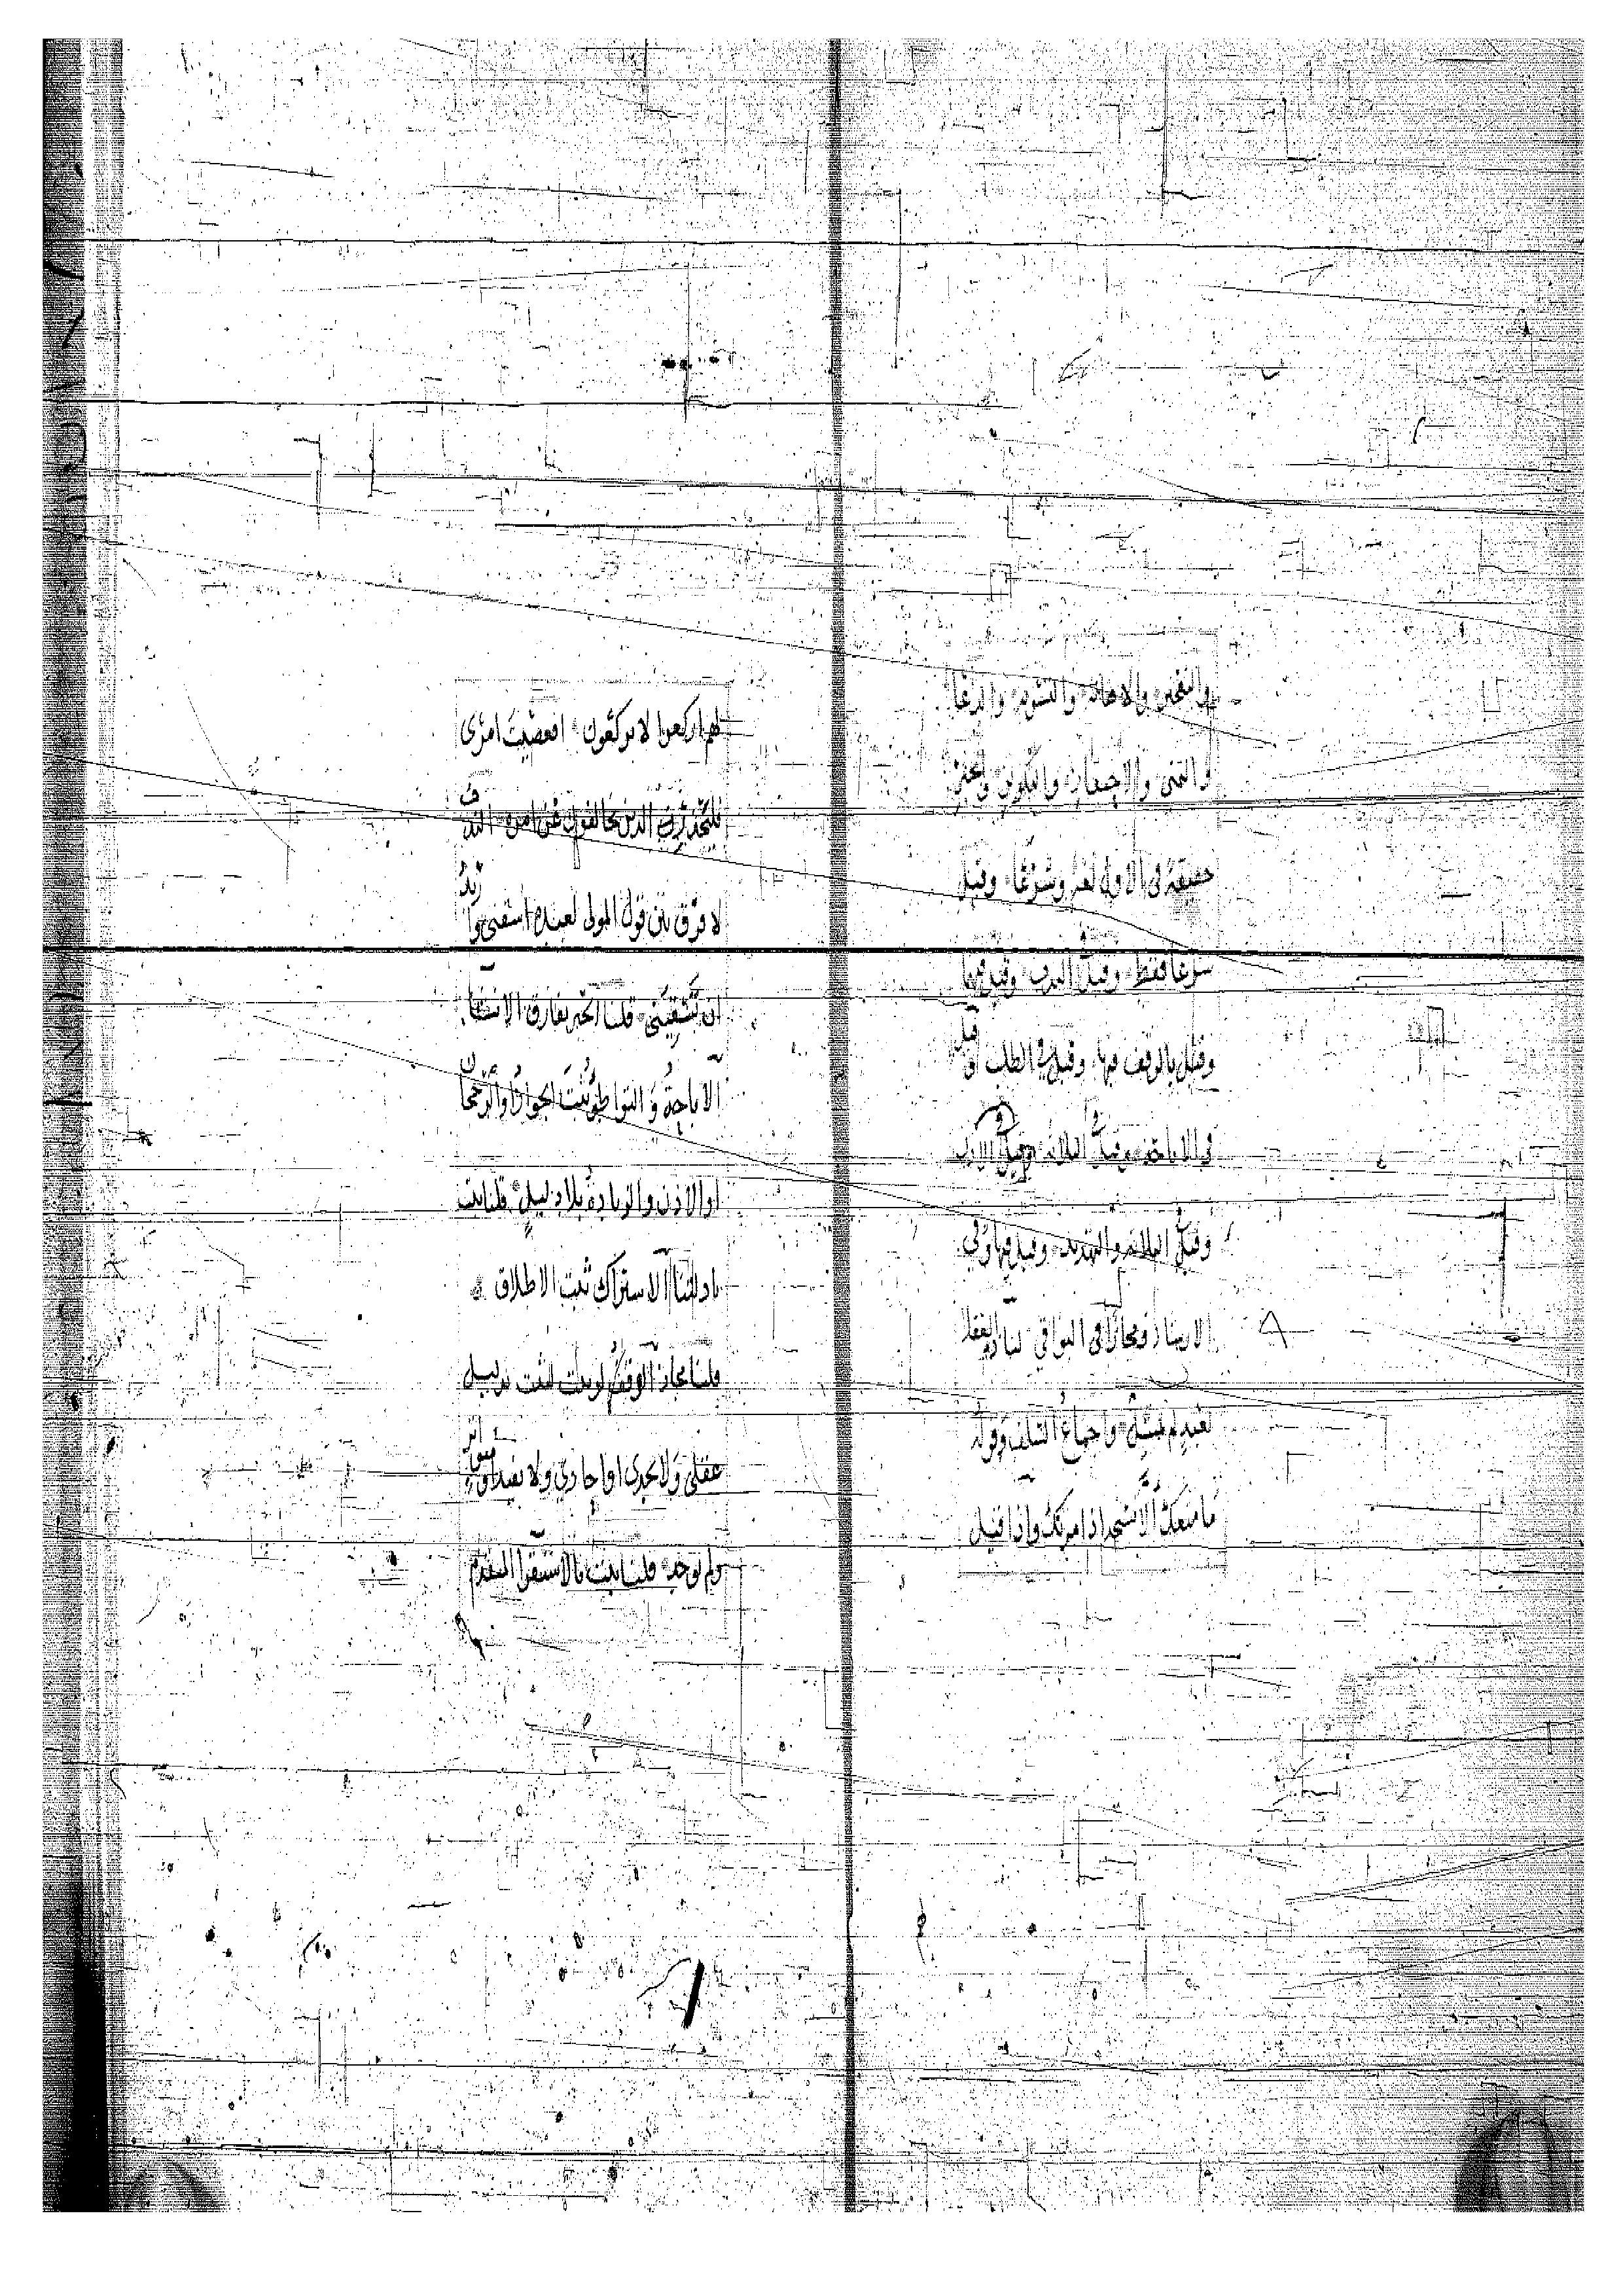 والتعجيز والاهانة والتسوية والدعا
والتمنى والاحتقار والتكوين لغيره
حقيقة فى الاول لغة وشرعا وقيل
شرعا فقط وقيل الندب وقيل فيهما
وقيل بالوقف فيها وقيل فى الطلب وقيل
فى الاباحة وقيل الثلاثة وقيل
وقيل الثلاثة والتهديد وقيل فيها وفى
الارشاد ومجاز فى البواقى لنا العقلا
لعبد لم يمتثل واجماع السلف وقوله
ما منعك الا تسجد اذ امرتك واذا قيل
لهم اركعوا لا يركعون افعصيت امرى
فليحذر الذين يخالفون عن امره الندب
لا فرق بين قول المولى لعبده اسقنى واريد
ان تسقينى قلنا الخبر يفارق الانشا
الاباحة والتواطؤ ثبت الجواز والرجحان
او الاذن والزيادة بلا دليل قلنا ثبت
بادلتنا الاشتراك ثبت الاطلاق
قلنا مجاز الوقف لو ثبت لثبت بدليل
عقلى ولا يجدى او احادى ولا يفيد او متواتر
ولم يوجد قلنا ثبت بالاستقرا المتقدم